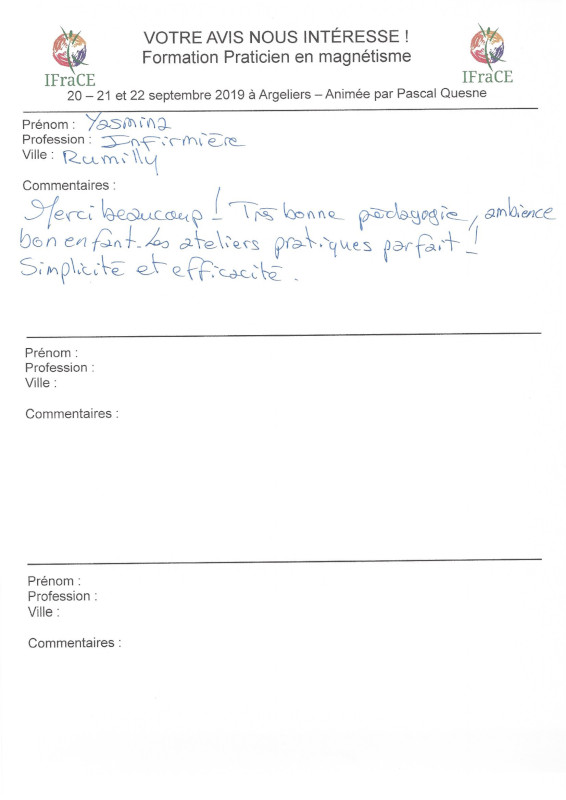 VOTRE AVIS NOUS INTÉRESSE !
Formation Praticien en magnétisme
IFraCE
IFraCE
20 – 21 et 22 septembre 2019 à Argeliers – Animée par Pascal Quesne
Prénom : Yasmina
Profession : Infirmière
Ville : Rumilly
Commentaires :
Merci beaucoup ! Très bonne pédagogie, ambience
bon enfant. Les ateliers pratiques parfait !
Simplicité et efficacité.
Prénom :
Profession :
Ville :
Commentaires :
Prénom :
Profession :
Ville :
Commentaires :